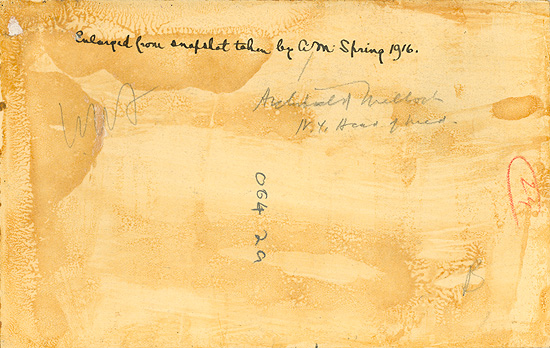 Enlarged from snapshot taken by A.M. Spring 1916.
Archibald Malloch
N.Y. Acad of Med.
064 29